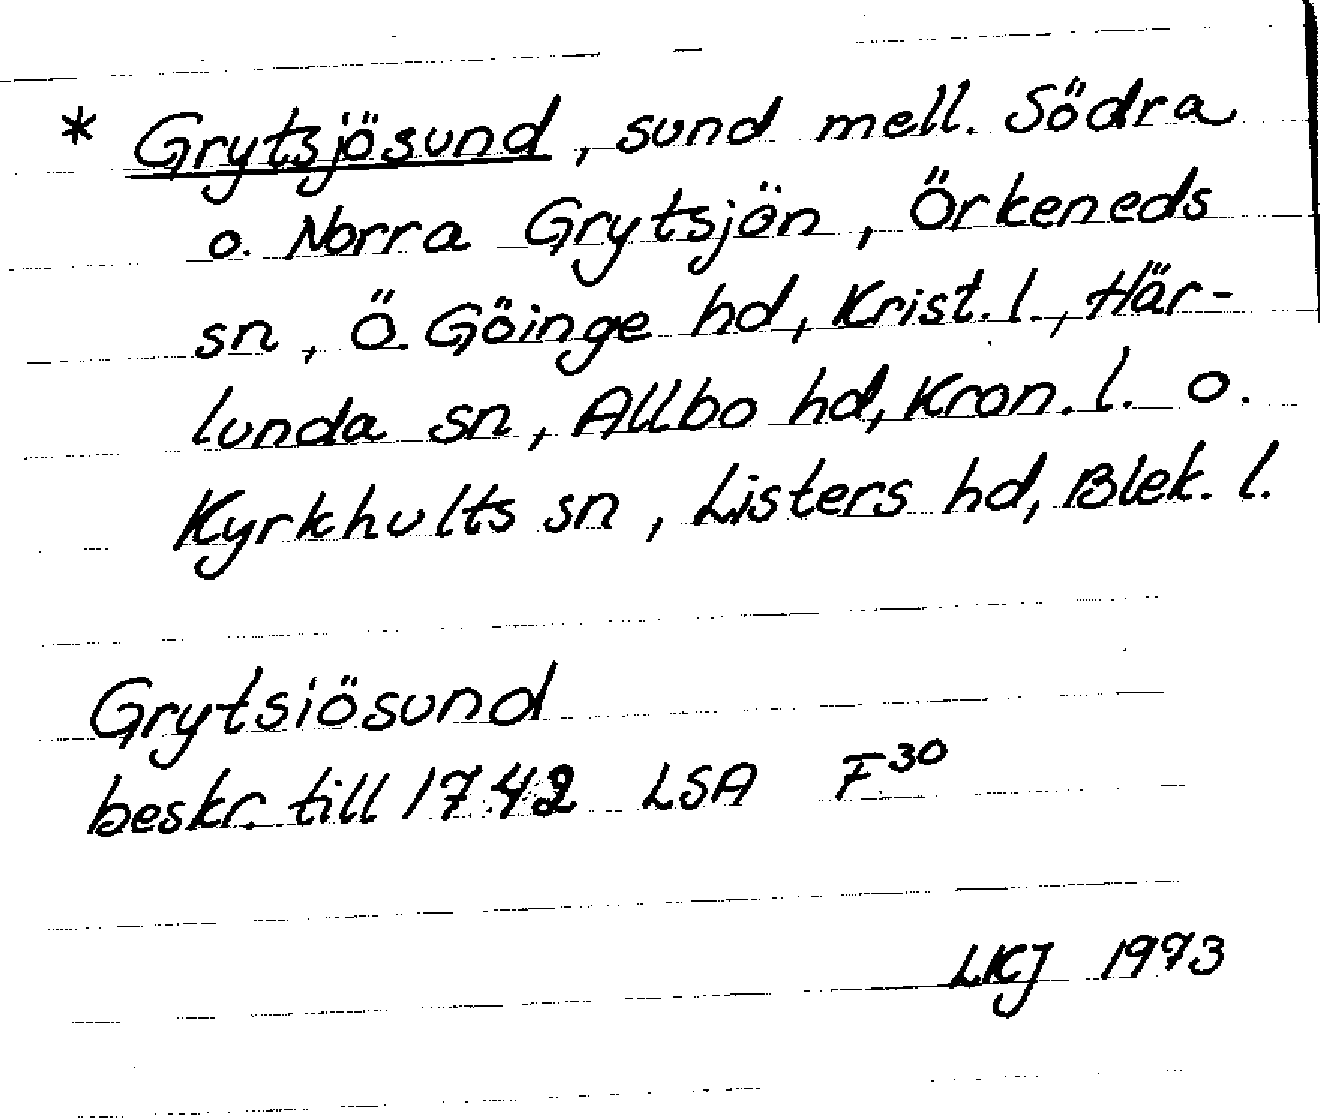 * Grytsjösund, sund mell. Södra
o. Norra Grytsjön, Örkeneds
sn, Ö. Göinge hd, Krist. l., Här-
lunda sn, Allbo hd, Kron. l. o.
Kyrkhults sn, Listers hd, Blek. l.
Grytsiösund
beskr. till 1742 LSA F30
LKJ 1973